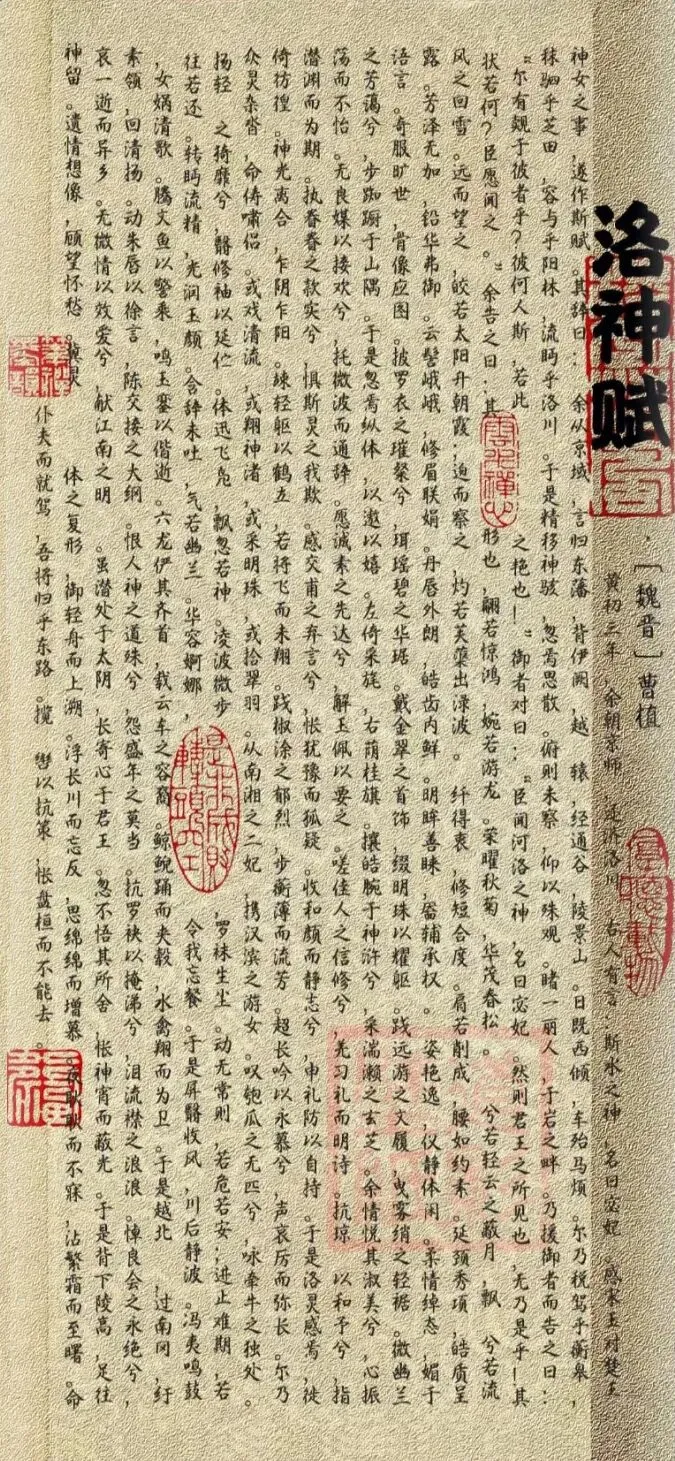 洛神赋
，[魏晋]曹植
黄初三年，余朝京师，还济洛川。古人有言，斯水之神，名曰宓妃。感宋玉对楚王
神女之事，遂作斯赋。其辞曰：余从京域，言归东藩，背伊阙，越 辕，经通谷，陵景山。日既西倾，车殆马烦。尔乃税驾乎蘅皋，
秣驷乎芝田，容与乎阳林，流眄乎洛川。于是精移神骇，忽焉思散。俯则未察，仰以殊观。睹一丽人，于岩之畔。乃援御者而告之曰：
“尔有觌于彼者乎？彼何人斯，若此 之艳也！”御者对曰：“臣闻河洛之神，名曰宓妃。然则君王之所见也，无乃是乎！其
状若何？臣愿闻之。”余告之曰：其 形也，翩若惊鸿，婉若游龙。荣曜秋菊，华茂春松。 兮若轻云之蔽月，飘 兮若流
风之回雪。远而望之，皎若太阳升朝霞；迫而察之，灼若芙蕖出渌波。 纤得衷，修短合度。肩若削成，腰如约素。延颈秀项，皓质呈
露。芳泽无加，铅华弗御。云髻峨峨，修眉联娟。丹唇外朗，皓齿内鲜。明眸善睐，靥辅承权。 姿艳逸，仪静体闲。柔情绰态，媚于
语言。奇服旷世，骨像应图。披罗衣之璀粲兮，珥瑶碧之华琚。戴金翠之首饰，缀明珠以耀躯。践远游之文履，曳雾绡之轻裾。微幽兰
之芳蔼兮，步踟蹰于山隅。于是忽焉纵体，以遨以嬉。左倚采旄，右荫桂旗。攘皓腕于神浒兮，采湍濑之玄芝。余情悦其淑美兮，心振
荡而不怡。无良媒以接欢兮，托微波而通辞。愿诚素之先达兮，解玉佩以要之。嗟佳人之信修兮，羌习礼而明诗。抗琼 以和予兮，指
潜渊而为期。执眷眷之款实兮，惧斯灵之我欺。感交甫之弃言兮，怅犹豫而狐疑。收和颜而静志兮，申礼防以自持。于是洛灵感焉，徙
倚彷徨。神光离合，乍阴乍阳。竦轻躯以鹤立，若将飞而未翔。践椒涂之郁烈，步蘅薄而流芳。超长吟以永慕兮，声哀厉而弥长。尔乃
众灵杂沓，命俦啸侣。或戏清流，或翔神渚，或采明珠，或拾翠羽。从南湘之二妃，携汉滨之游女。叹匏瓜之无匹兮，咏牵牛之独处。
扬轻 之猗靡兮，翳修袖以延伫。体迅飞凫，飘忽若神。凌波微步， 罗袜生尘。动无常则，若危若安；进止难期，若
往若还。转眄流精，光润玉颜。含辞未吐，气若幽兰。华容婀娜， 令我忘餐。于是屏翳收风，川后静波。冯夷鸣鼓
，女娲清歌。腾文鱼以警乘，鸣玉銮以偕逝。六龙俨其齐首，载云车之容裔。鲸鲵踊而夹毂，水禽翔而为卫。于是越北 ，过南冈，纡
素领，回清扬。动朱唇以徐言，陈交接之大纲。恨人神之道殊兮，怨盛年之莫当。抗罗袂以掩涕兮，泪流襟之浪浪。悼良会之永绝兮，
哀一逝而异乡。无微情以效爱兮，献江南之明 。虽潜处于太阴，长寄心于君王。忽不悟其所舍，怅神宵而蔽光。于是背下陵高，足往
神留。遗情想像，顾望怀愁。冀灵 体之复形，御轻舟而上溯。浮长川而忘反，思绵绵而增慕。夜耿耿而不寐，沾繁霜而至曙。命
仆夫而就驾，吾将归乎东路。揽 辔以抗策，怅盘桓而不能去。